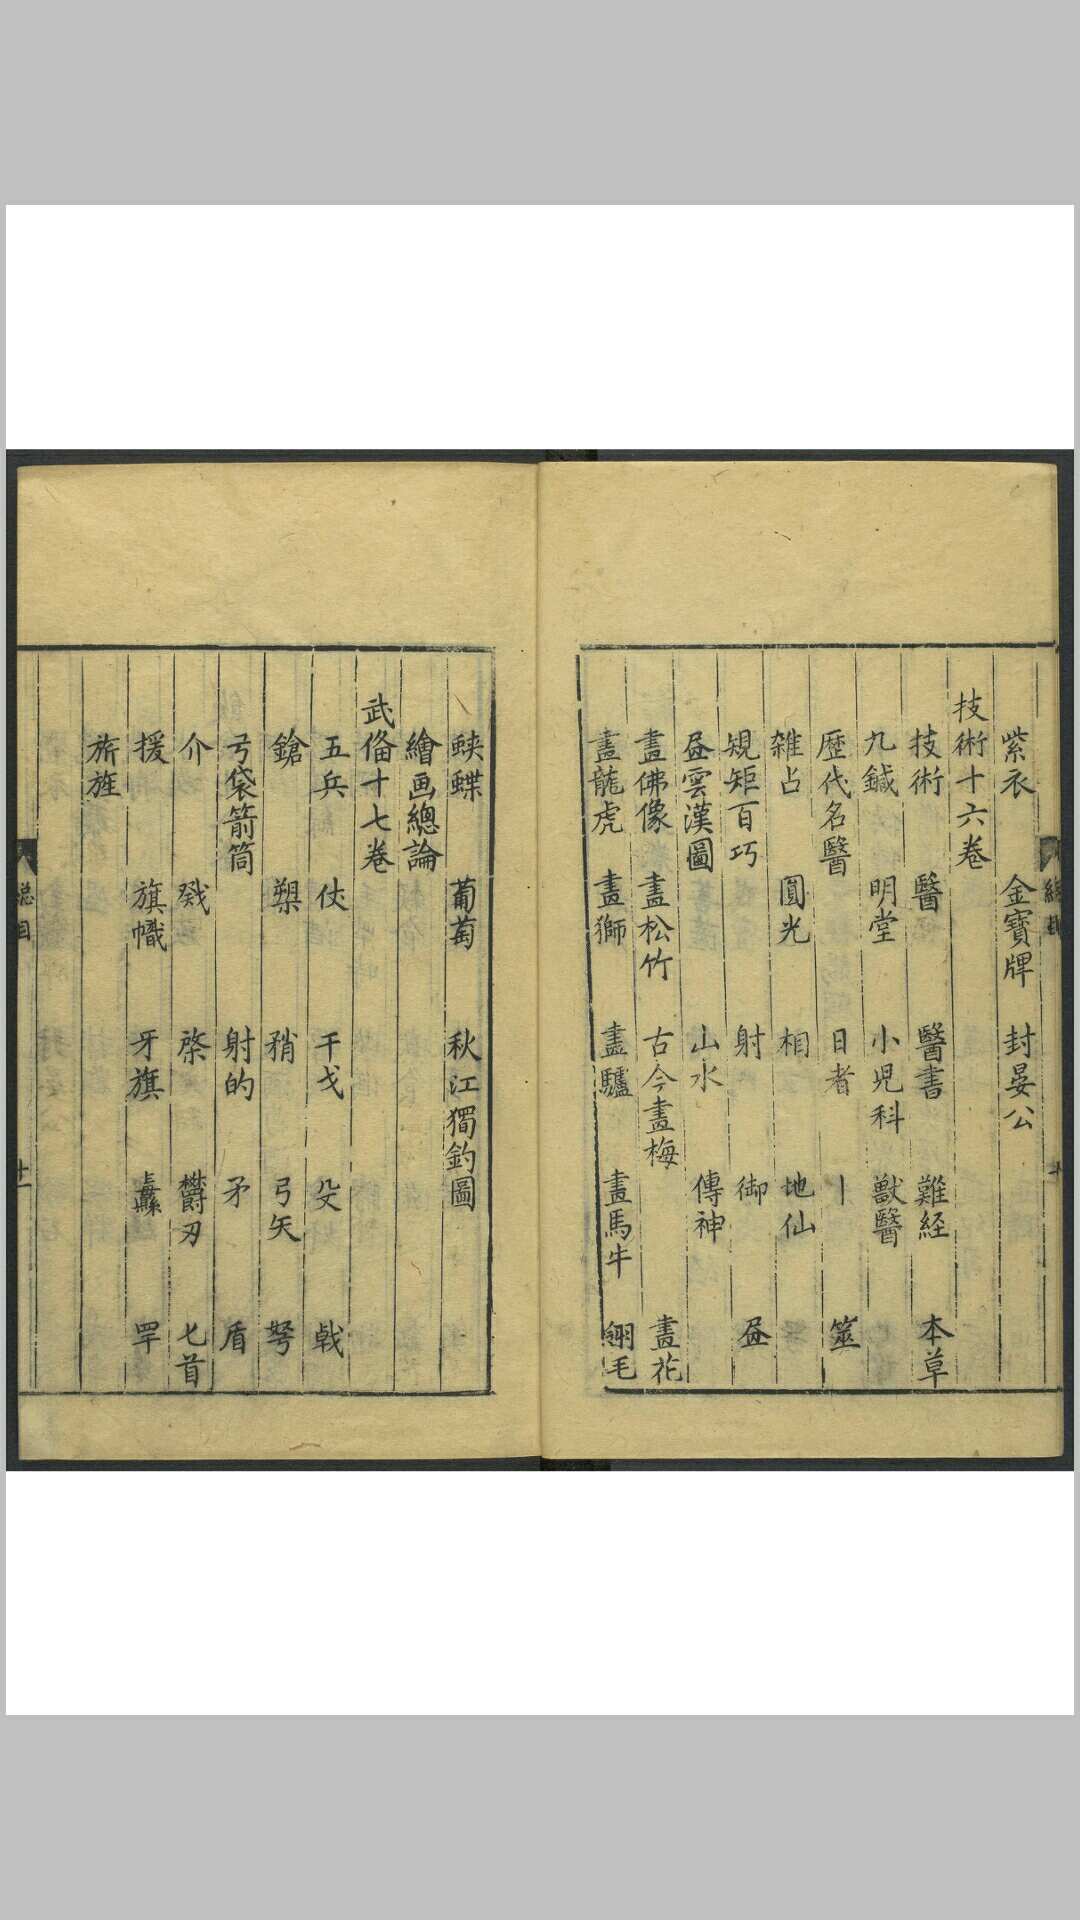 紫衣 金寶牌 封晏公
技術十六卷
技術 醫 醫書 難経 本草
九鍼 明堂 小児科 獸醫
歷代名醫 日者 卜 筮
雜占 圓光 相 地仙
規矩百巧 射 御 昼
昼雲漢圖 山水 傳神
畫佛像 畫松竹 古今畫梅 畫花
畫龍虎 畫獅 畫驢 畫馬牛 翎毛
蛺蝶 葡萄 秋江獨釣圖
繪画總論
武俻十七卷
五兵 仗 干戈 殳 戟
鎗 槊 矟 弓矢 弩
弓袋箭筒 射的 矛 盾
介 棨 欝刃 匕首
援 旗幟 牙旗 纛 罕
旂旌
總目 十一